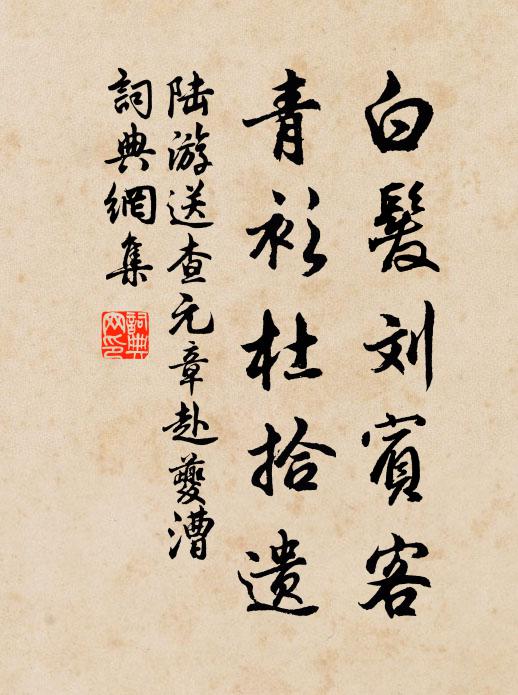 白髮刘賓客
青衫杜拾遗
陆游送查元章赴夔漕
詞典網集
詞典网印